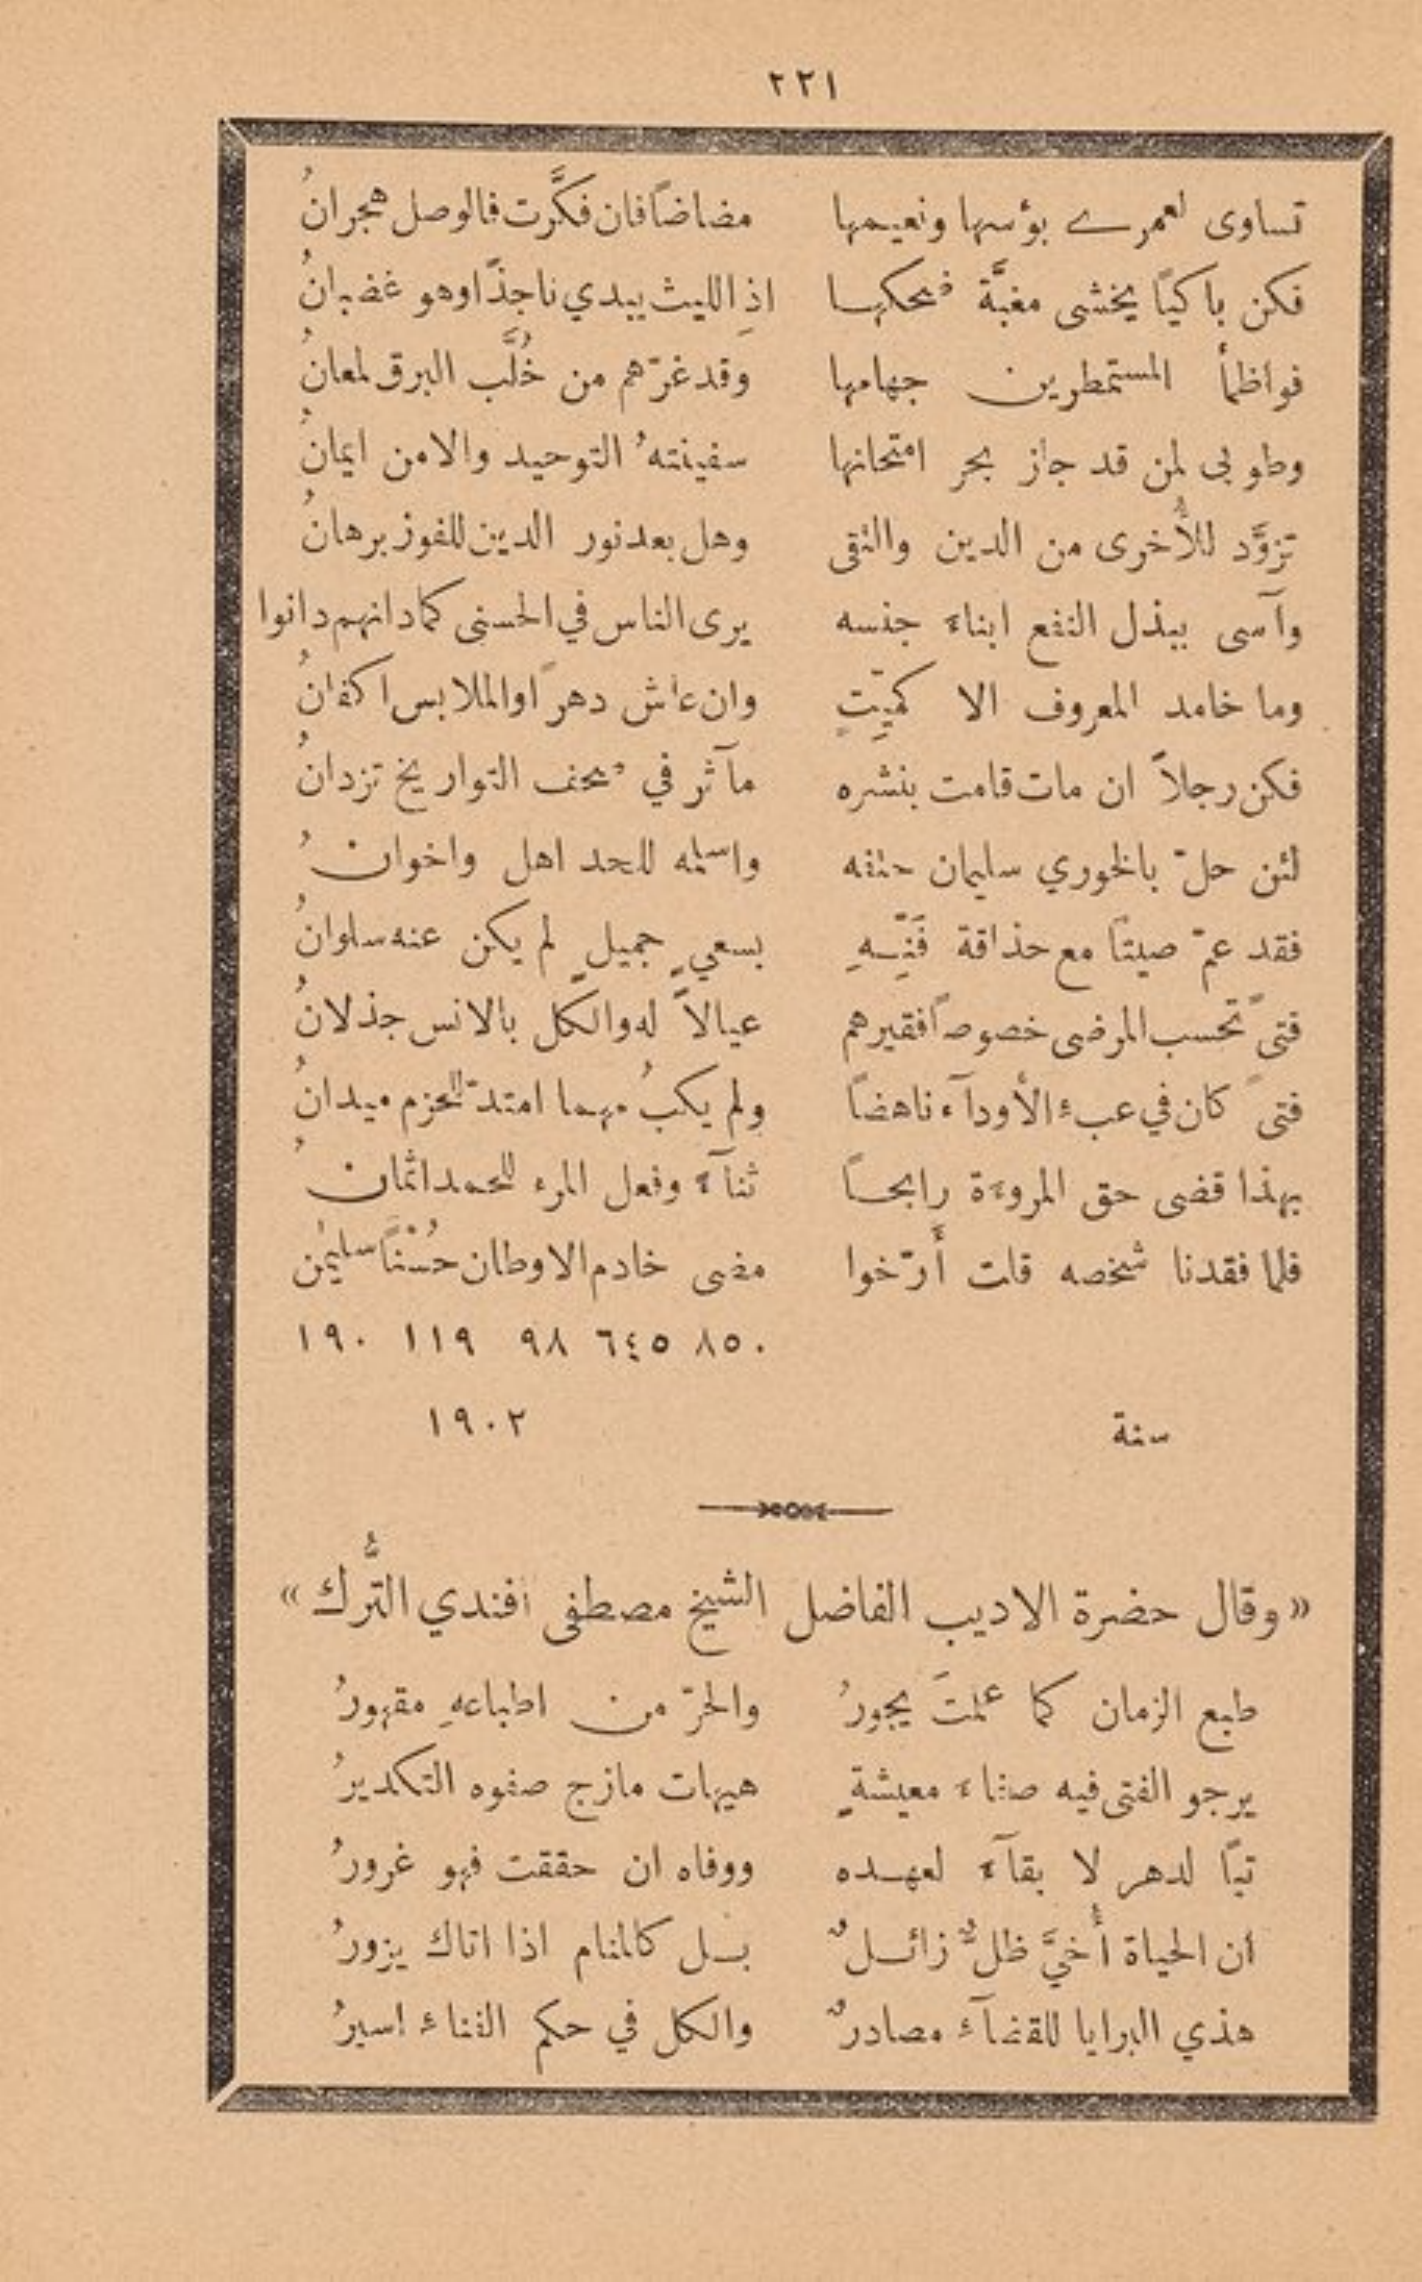 ٢٢١
تساوى لعمرے بؤسها ونعيمها مضاضاً فان فكَّرت فالوصل هجرانُ
فكن باكيًا يخشى مغبَّة ضحكها اذِ الليث يبدي ناجذًا وهو غضبانُ
فواظمأ المستمطرين جهامها وَقد غرّهم من خُلَّب البرق لمعانُ
وطوبى لمن قد جاز بحر امتحانها سفينتهُ التوحيد والامن ايمانُ
تزوَّد للأُخرى من الدين والتقى وهل بعد نور الدين للفوز برهانُ
وآسى ببذل النفع ابناءَ جنسه يرى الناس في الحسنى كما دانهم دانوا
وما خامد المعروف الا كميّتٍ وان عاش دهرًا والملابس اكفانُ
فكن رجلاً ان مات قامت بنشره مآثر في صحف التواريخ تزدانُ
لئن حلّ بالخوري سليمان حتفه واسلمه للحد اهل واخوانُ
فقد عمّ صيتًا مع حذاقة فَنِّـهِ بسعيٍ جميلٍ لم يكن عنه سلوانُ
فتىً تحسب المرضى خصوصاً فقيرهم عيالاً له والكل بالانس جذلانُ
فتىً كان في عبءِ الأودآء ناهضاً ولم يكبُ مهما امتدّ للحزم ميدانُ
بهذا قضى حق المروءة رابحاً ثنآءً وفعل المرء للحمد اثمانُ
فلما فقدنا شخصه قلت أَرّخوا مضى خادم الاوطان حُسْنًا سليمٰن
٨٥٠ ٦٤٥ ٩٨ ١١٩ ١٩٠
سنة ١٩٠٢
« وقال حضرة الاديب الفاضل الشيخ مصطفى افندي التُّرك »
طبع الزمان كما علمتَ يجورُ والحرّ من اطباعهِ مقهورُ
يرجو الفتى فيه صفاءَ معيشةٍ هيهات مازج صفوه التكديرُ
تبًا لدهر لا بقآءَ لعهده ووفاه ان حققت فهو غرورُ
ان الحياة أُخيَّ ظلٌّ زائلٌ بل كالمنام اذا اتاك يزورُ
هذي البرايا للقضآءِ مصادرٌ والكل في حكم الفناءِ اسيرُ